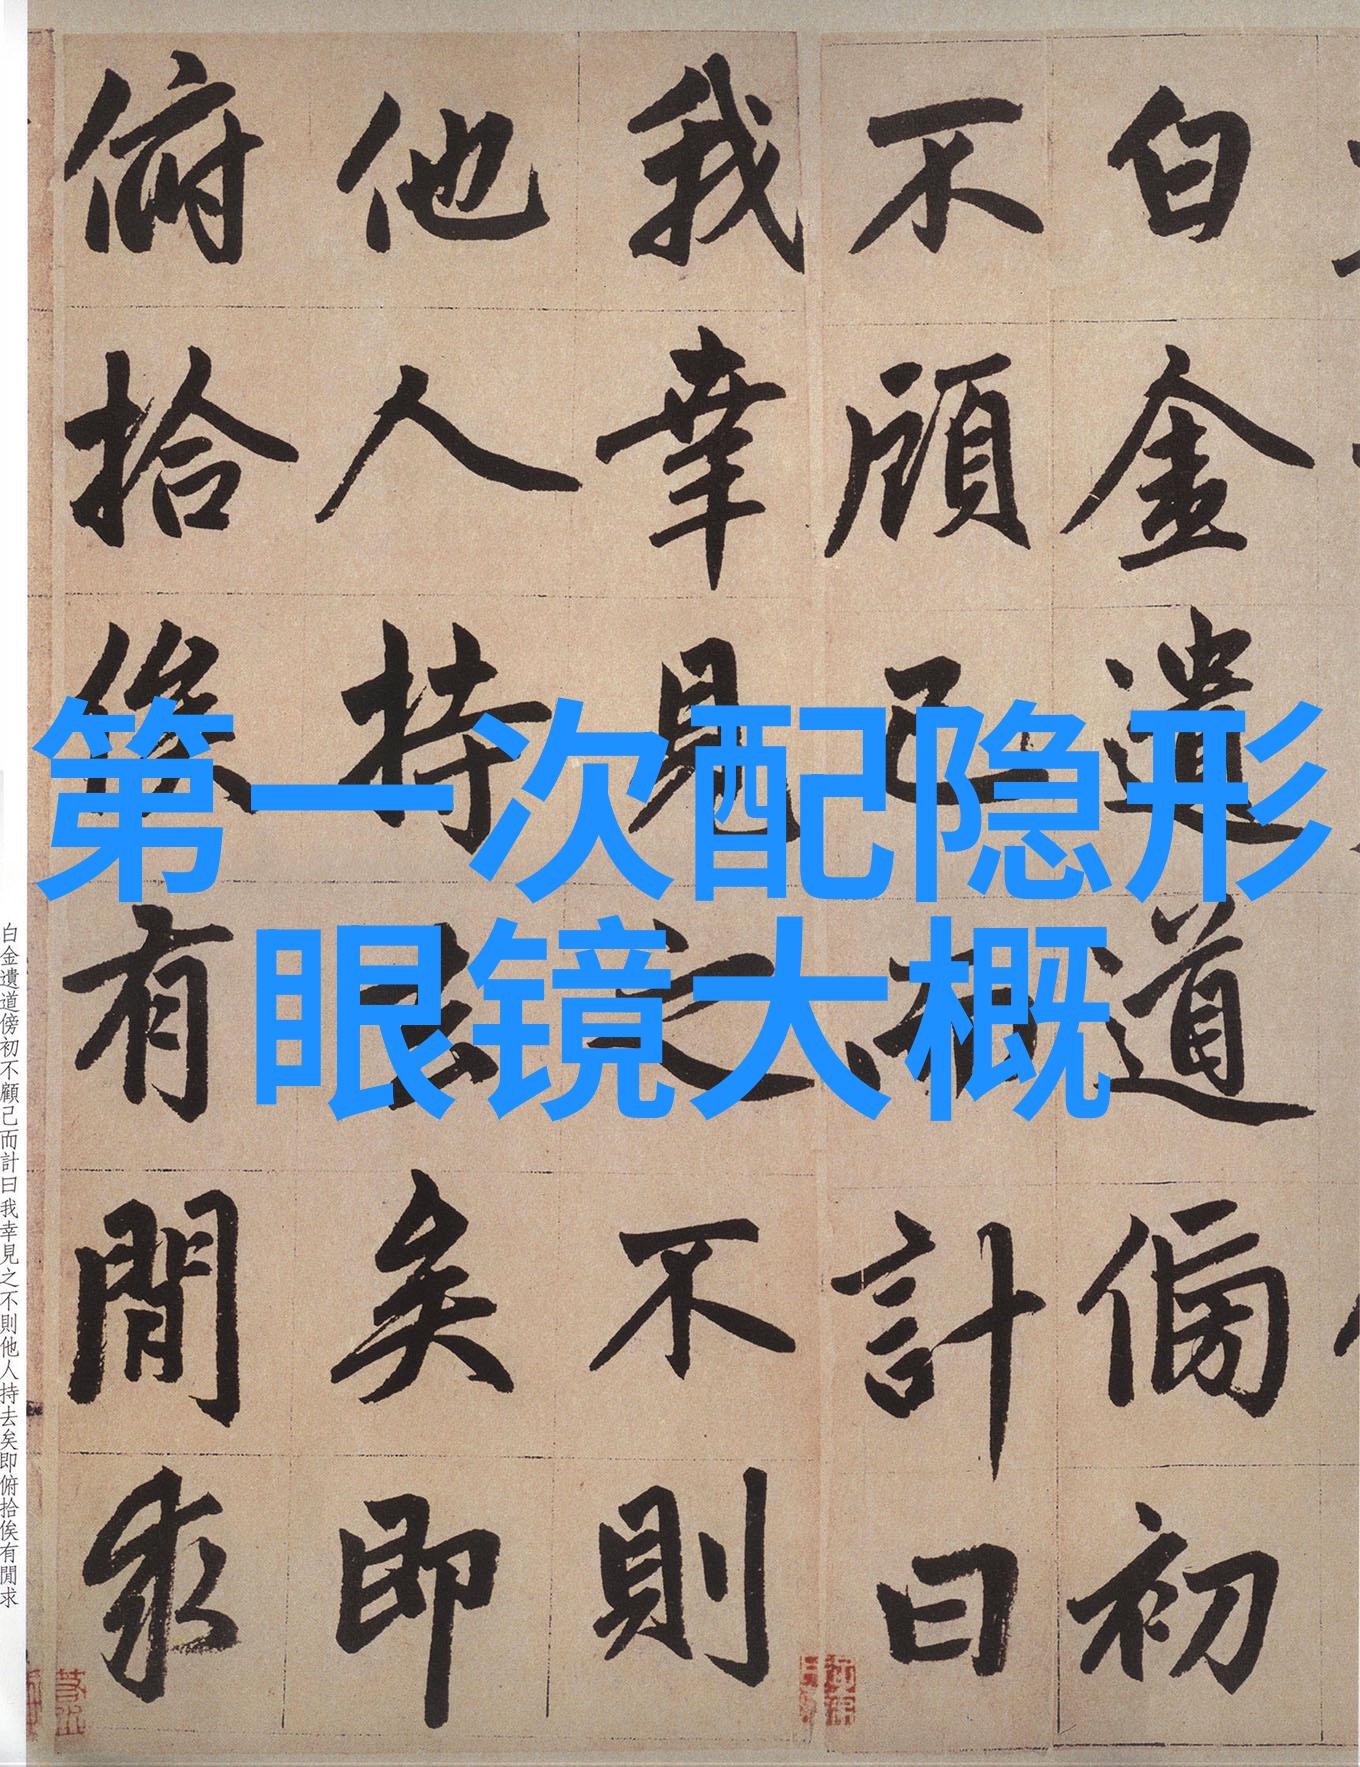 白金遺道傍初
不顧己而計曰
我幸見之不則
他人持去矣即
俯拾俟有閒求
第一次配隐形
眼镜大概
白金遺道傍初不顧己而計曰我幸見之不則他人持去矣即俯拾俟有閒求